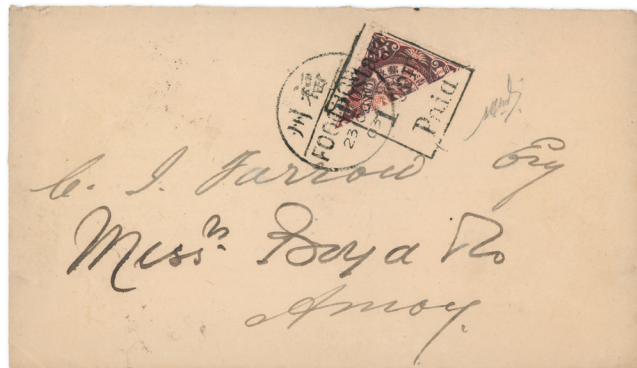 福州
FOOCHOW
23
03
Postage
1 Cent
Paid
C. J. Farrow Esq
Messrs. Boyd & Co
Amoy